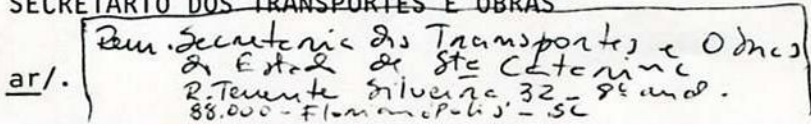 SECRETÁRIO DOS TRANSPORTES E OBRAS
Rem. Secretaria dos Transportes e Obras
do Estado de Sta Catarina
ar/. R. Tenente Silveira, 32 - 8º and.
88.000 - Florianópolis - SC